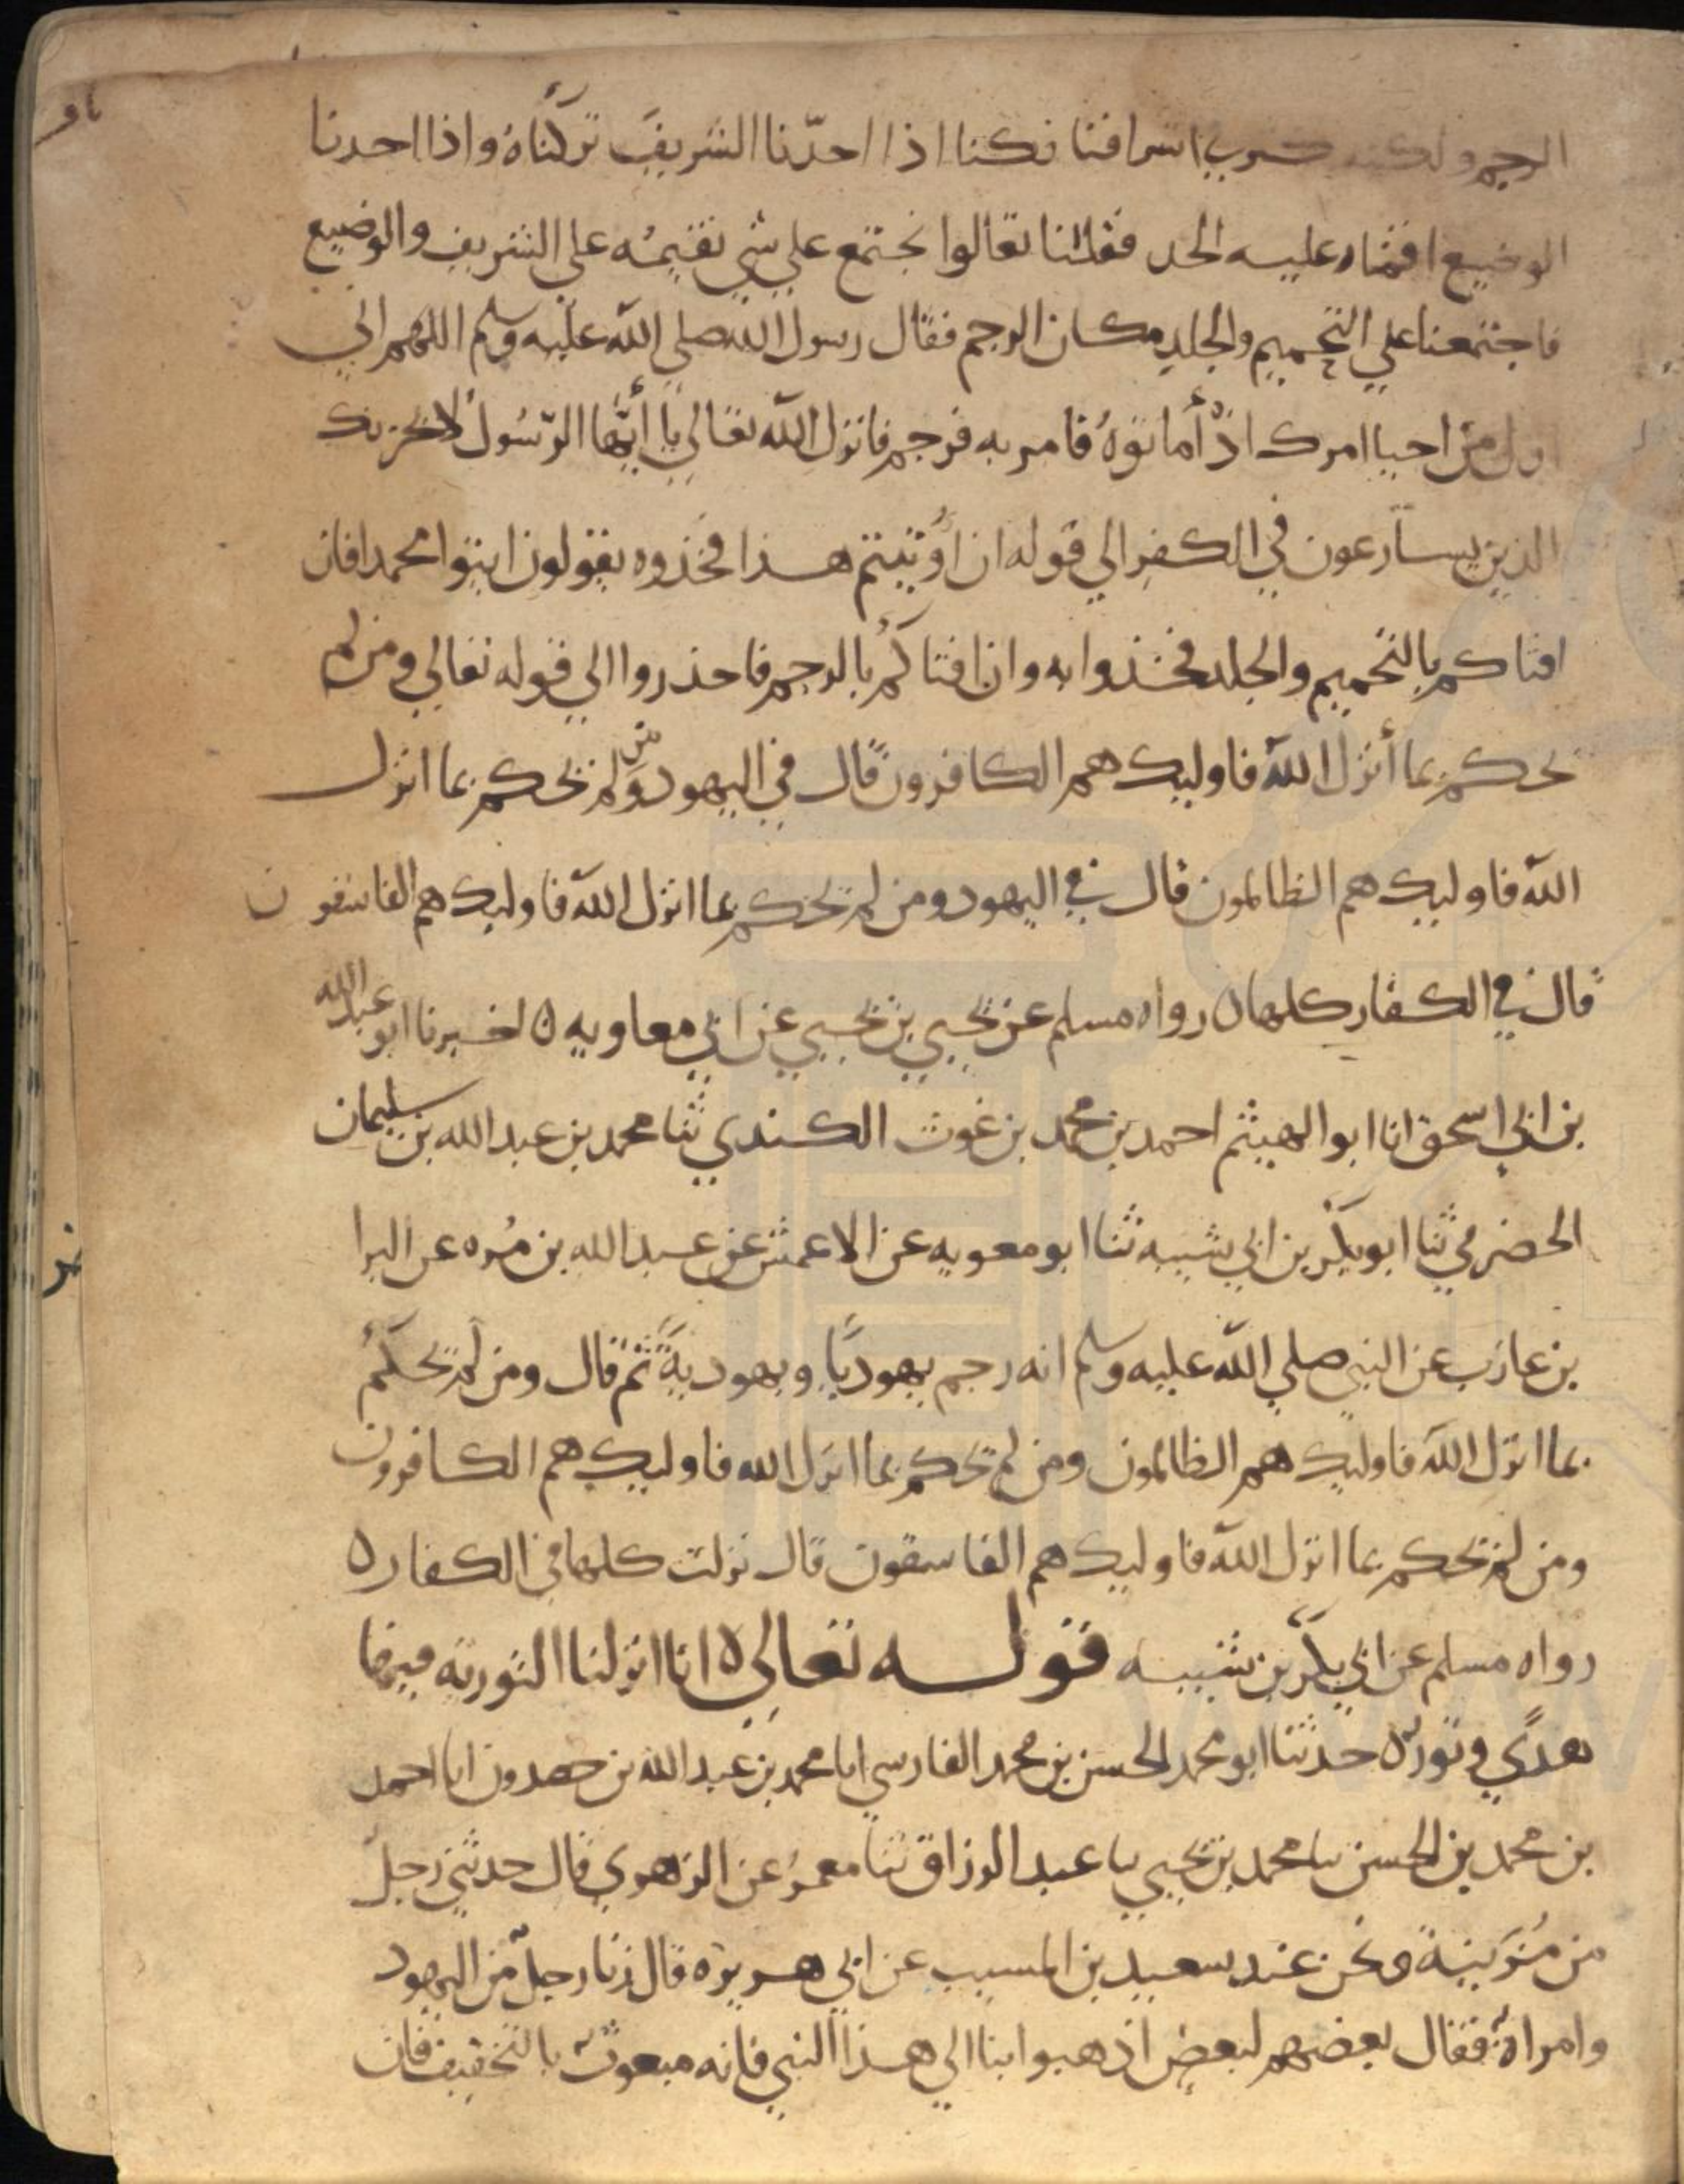 الرجم ولكنه كثر في اشرافنا فكنا اذا اخذنا الشريف تركناه واذا اخذنا
الوضيع اقمنا عليه الحد فقلنا تعالوا نجتمع علي شي نقيمه علي الشريف والوضيع
فاجتمعنا علي التحميم والجلد مكان الرجم فقال رسول الله صلي الله عليه وسلم اللهم اني
اول من احيا امرك اذ أماتوه فامر به فرجم فانزل الله تعالي يا أيها الرسول لا يحزنك
الذين يسارعون في الكفر الي قوله ان اوتيتم هذا فخذوه يقولون ايتوا محمدا فان
افتاكم بالتحميم والجلد فخذوا به وان افتاكم بالرجم فاحذروا الي قوله تعالي ومن لم
يحكم بما أنزل الله فاوليك هم الكافرون قال في اليهود ومن لم يحكم بما انزل
الله فاوليك هم الظالمون قال في اليهود ومن لم يحكم بما انزل الله فاوليك هم الفاسقون
قال في الكفار كلها ه رواه مسلم عن يحيي بن يحيي عن ابي معاويه ه اخبرنا ابو عبد الله
بن ابي اسحق انا ابو الهيثم احمد بن محمد بن غوث الكندي ثنا محمد بن عبد الله بن سليمان
الحضرمي ثنا ابو بكر بن ابي شيبه ثنا ابو معويه عن الاعمش عن عبد الله بن مره عن البرا
بن عازب عن النبي صلي الله عليه وسلم انه رجم يهوديا ويهودية ثم قال ومن لم يحكم
بما انزل الله فاوليك هم الظالمون ومن لم يحكم بما انزل الله فاوليك هم الكافرون
ومن لم يحكم بما انزل الله فاوليك هم الفاسقون قال نزلت كلها في الكفار ه
رواه مسلم عن ابي بكر بن شيبه قوله تعالي ه انا انزلنا التوريه فيها
هدي ونور ه حدثنا ابو محمد الحسن بن محمد الفارسي انا محمد بن عبد الله بن حمدون انا احمد
بن محمد بن الحسن ثنا محمد بن يحيي ثنا عبد الرزاق ثنا معمر عن الزهري قال حدثني رجل
من مزينة ونحن عند سعيد بن المسيب عن ابي هريره قال زنا رجل من اليهود
وامراة فقال بعضهم لبعض اذهبوا بنا الي هذا النبي فانه مبعوث بالتخفيف فان